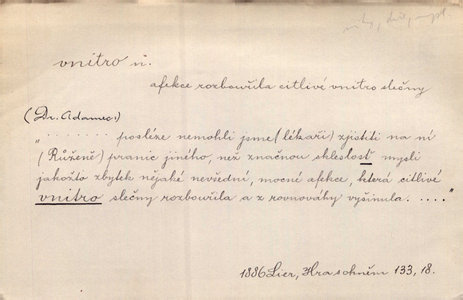 vnitro n.
afekce rozbouřila citlivé vnitro slečny
(Dr. Adamec:)
„ . . . . . . . posléze nemohli jsme (lékaři) zjistiti na ní
(Růženě) pranic jiného, než značnou skleslosť mysli
jakožto zbytek nějaké nevšední, mocné afekce, která citlivé
vnitro slečny rozbouřila a z rovnováhy vyšinula. . . . . "
1886 Lier, Hra s ohněm 133, 18.